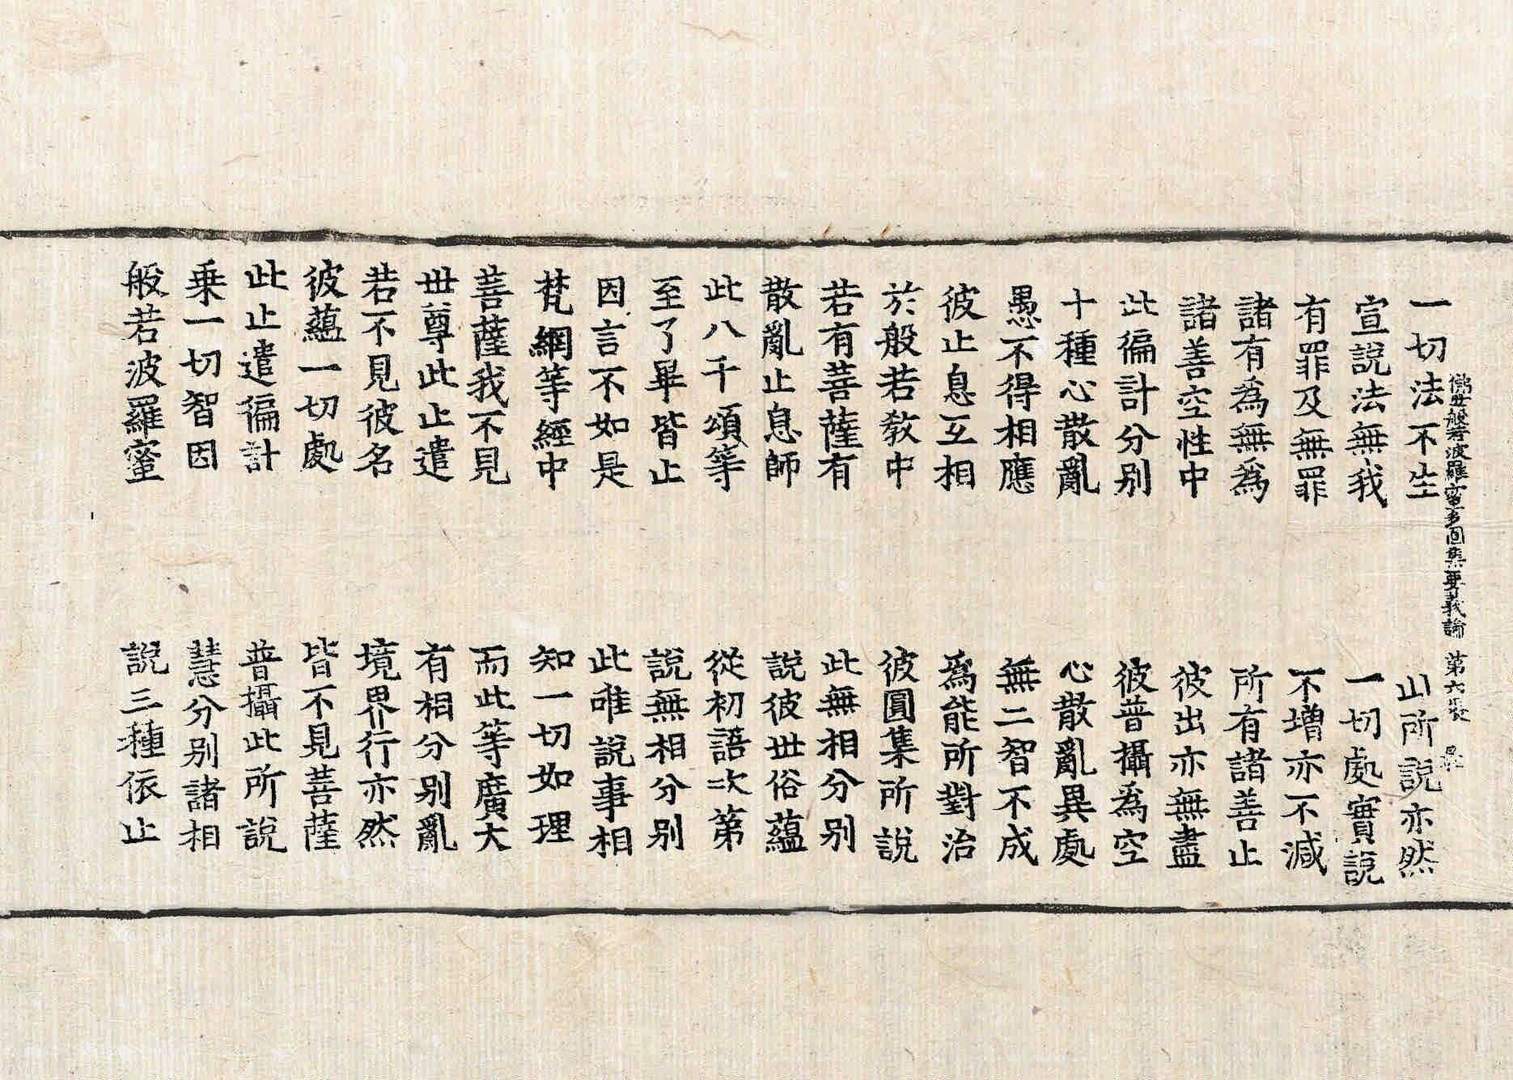 佛母般若波羅蜜多圓集要義論 第六張
一切法不生 此所說亦然
宣說法無我 一切處實說
有罪及無罪 不增亦不減
諸有為無為 所有諸善止
諸善空性中 彼出亦無盡
此徧計分別 彼普攝為空
十種心散亂 心散亂異處
愚不得相應 無二智不成
彼止息互相 為能所對治
於般若教中 彼圓集所說
若有菩薩有 此無相分別
散亂止息師 說彼世俗蘊
此八千頌等 從初語次第
至了畢皆止 說無相分別
因言不如是 此唯說事相
梵網等經中 知一切如理
菩薩我不見 而此等廣大
世尊此止遣 有相分別亂
若不見彼名 境界行亦然
彼蘊一切處 皆不見菩薩
此止遣徧計 普攝此所說
乗一切智因 慧分別諸相
般若波羅蜜 說三種依止